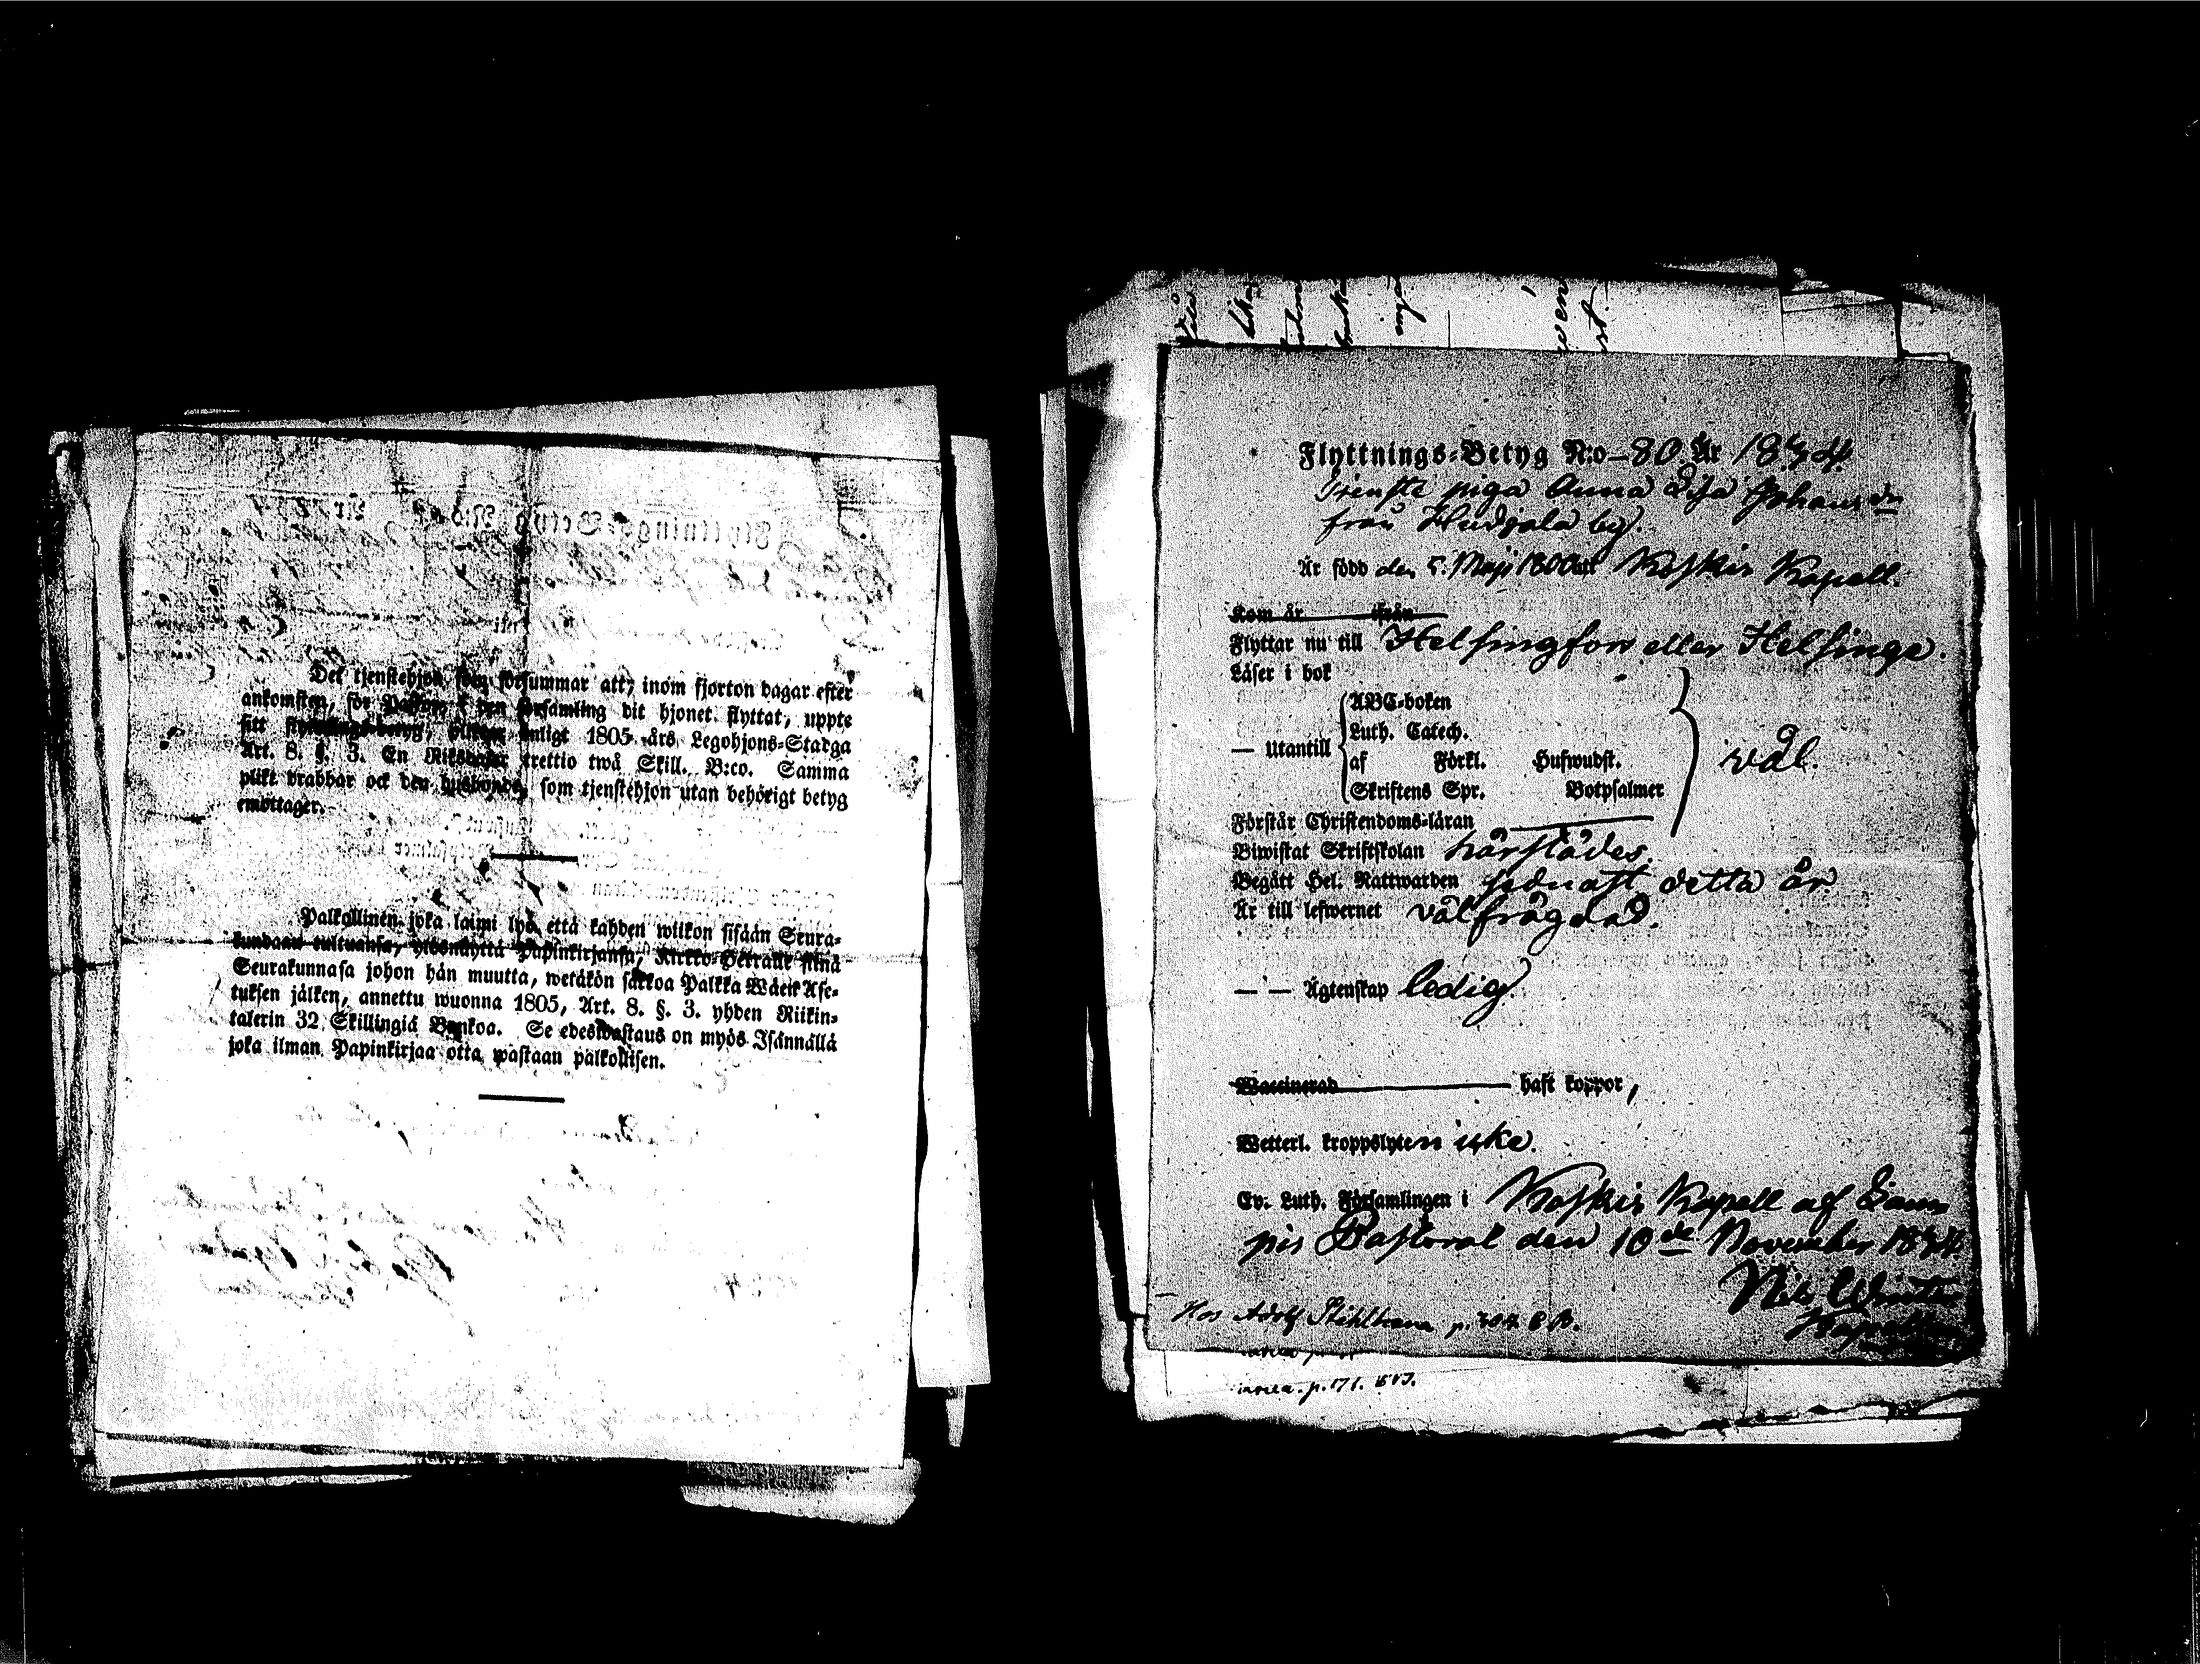 Det tjenstehjon, som försummar att, inom fjorton dagar efter
ankomsten, för Pastor i den församling dit hjonet flyttat, uppte
sitt flyttnings-betyg, plikte enligt 1805 års Legohjons-Stadga
Art. 8. §. 3. En Riksdaler trettio twå Skill. B:co. Samma
plikt drabbar ock den husbonde, som tjenstehjon utan behörigt betyg
emottager.
Palkollinen joka laimi lyö, että kahden wiikon sisään Seura-
kundaan tultuansa, ylösnäyttä Papinkirjansa, Kirkko-Herralle siinä
Seurakunnasa johon hän muutta, wetäkön sakkoa Palkka Wäen Ase-
tuksen jälken, annettu wuonna 1805, Art. 8. §. 3. yhden Riikin-
talerin 32 Skillingiä Bankoa. Se edeswastaus on myös Isännällä
joka ilman Papinkirjaa otta wastaan palkollisen.
Flyttnings-Betyg N:o 80 År 1834
Tjenste pigan Anna Lisa Johansdr
från Hudjala by.
Är född den 5 Maji 1800 uti Koskis Kapell.
Kom år ifrån
Flyttar nu till Helsingfors eller Helsinge.
Läser i bok
ABC-boken
Luth. Catech.
— Utantill af Förkl. Hufwudst. väl.
Skriftens Spr. Botpsalmer
Förstår Christendoms-läran
Biwistat Skriftskolan härstädes.
Begått Hel. Nattwarden sednast detta år
Är till lefwernet välfrägdad.
— — Ägtenskap ledig
Waccinerad haft koppor,
Wetterl. kroppslyten icke.
Ev. Luth. Församlingen i Koskis Kapell af Lam
pis Pastorat den 10de November 1834.
Nils
Hos Adolf p. B.
p. 171.